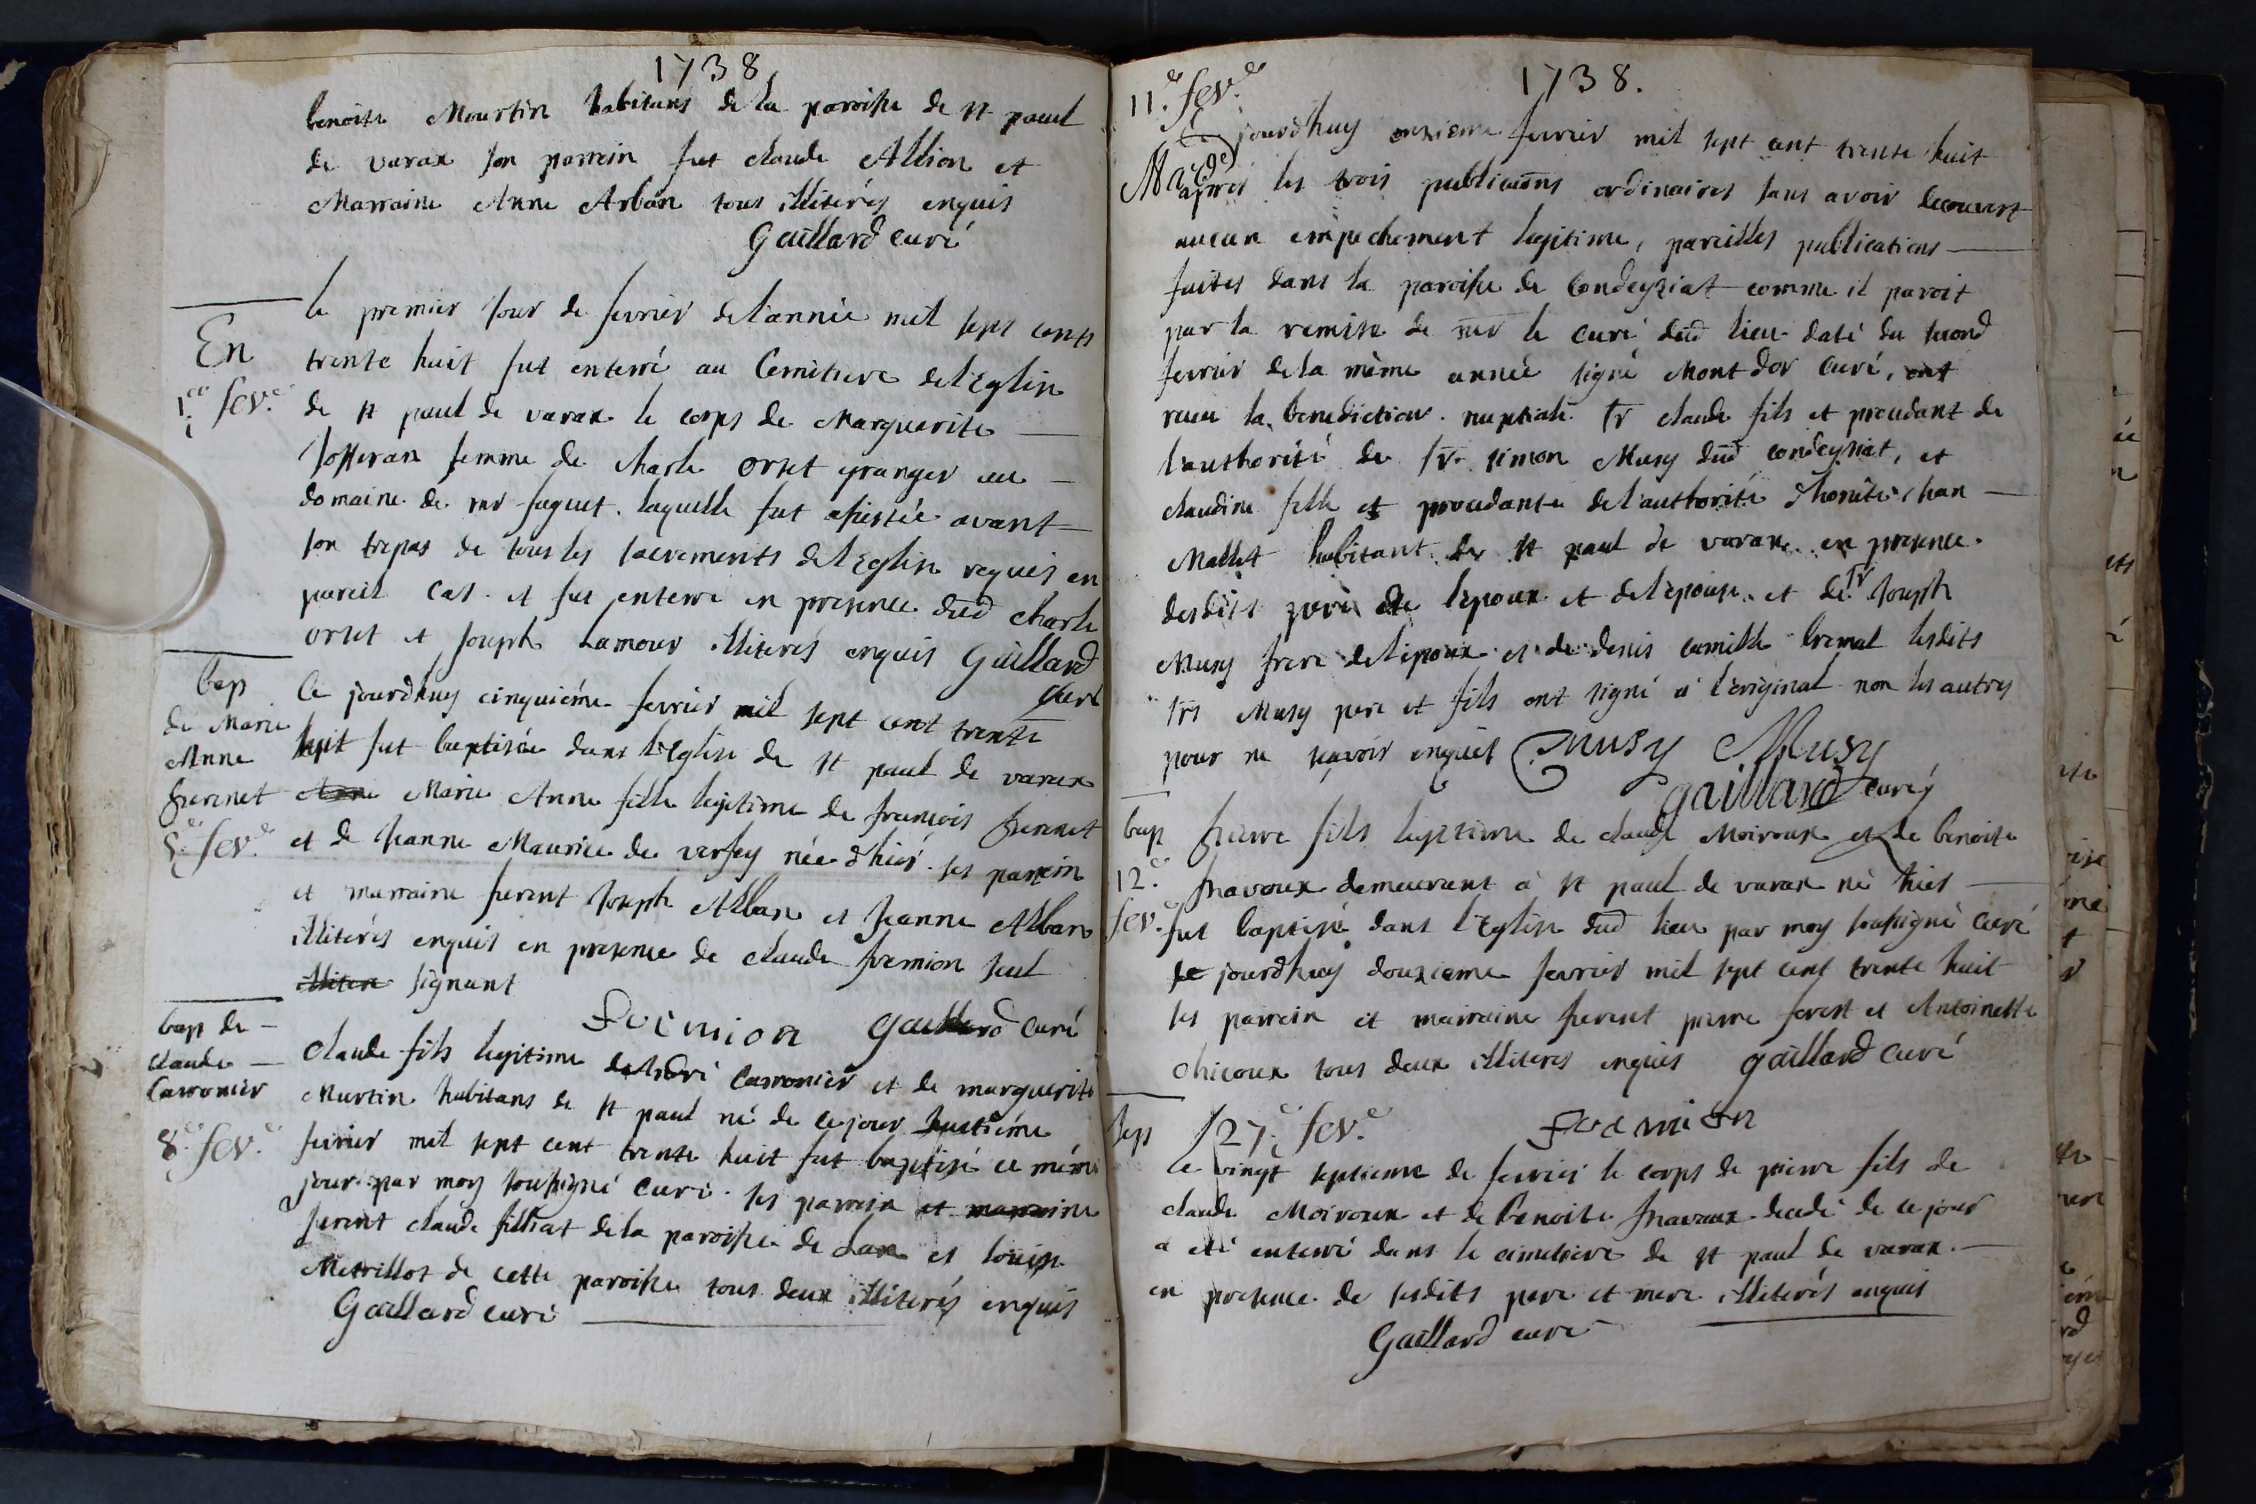 1738
benoite Mourtin habitans de la paroisse de st paul
de varax son parrein fut claude Allion et
Marraine Anne Arban tous illiterés enquis
Gaillard curé
En
1er fev.e
le premier jour de fevrier de l'année mil sept cents
trente huit fut enterré au Cemitiere de l'Eglise
de st paul de varax le corps de Marguerite
Josseran femme de charle orset granger au
domaine de mr faguet. laquelle fut assistée avant
son trepas de tous les sacrements de l'Eglise requis en
pareil cas. et fut enterré en presence dud charle
orset et joseph Lamour illiterés enquis Gaillard
curé
bap
de Marie
Anne
frerenet
5.e fev.e
Ce jourdhuy cinquiéme fevrier mil sept cent trente
huit fut baptisée dans l'Eglise de st paul de varax
Marie Anne fille legitime de francois
et de Jeanne Maurice de verfey née d'hier. ses parrein
et marraine furent Joseph Alban et Jeanne Alban
illiterés enquis en presence de claude fremion seul
illitere signant
fremion Gaillard curé
bap de
claude
Carronier
8.e fev.e
Claude fils legitime de Carronier et de marguerite
Murtin habitans de st paul né de ce jour huitiéme
fevrier mil sept cent trente huit fut baptisé ce méme
jour par moy soussigné curé. ses parrein et marraine
furent claude filliat de la paroisse de Lax et louise
Metrillot de cette paroisse tous deux illiterés enquis
Gaillard curé
1738.
11.e fev.e
M
Ce jourdhuy onzieme fevrier mil sept cent trente huit
aprés les trois publicaons ordinaires sans avoir decouvert
aucun empechement legitime, pareilles publications
faites dans la paroisse de Condeyziat comme il paroit
par la remise de mr le curé dud lieu daté du second
fevrier de la même année signé Mont d'or curé, ont
receu la benediction nuptiale Sr claude fils et procedant de
l'authorité de Sr. simon Musy dud condeyziat, et
claudine fille et procedante de l'authorité d'honéte chan
Mallet habitant de st paul de varax en presence
desdits peres de l'epoux et de l'epouse et de Sr Joseph
Musy frere de l'epoux et de denis camille bremal lesdits
Srs Musy pere et fils ont signé à l'original non les autres
pour ne sçavoir enquis Musy Musy
gaillard curéy
bap
12.e
fev.e
Pierre fils legitime de claude Moiroux et de benoite
fravoux demeurant à st paul de varax né hier
fut baptisé dans l'Eglise dud lieu par moy soussigné curé
ce jourdhuy douzieme fevrier mil sept cent trente huit
ses parrein et marraine furent pierre forest et Antoinette
chicoux tous deux illiteres enquis gaillard curé
fremion
sep
27.e fev.e
Le vingt septieme de fevrier le corps de pierre fils de
claude Moiroux et de Benoite fravoux decedé de ce jour
a eté enterré dans le cimetiere de st paul de varax.
en presence de sesdits pere et mere illiterés enquis
Gaillard curé